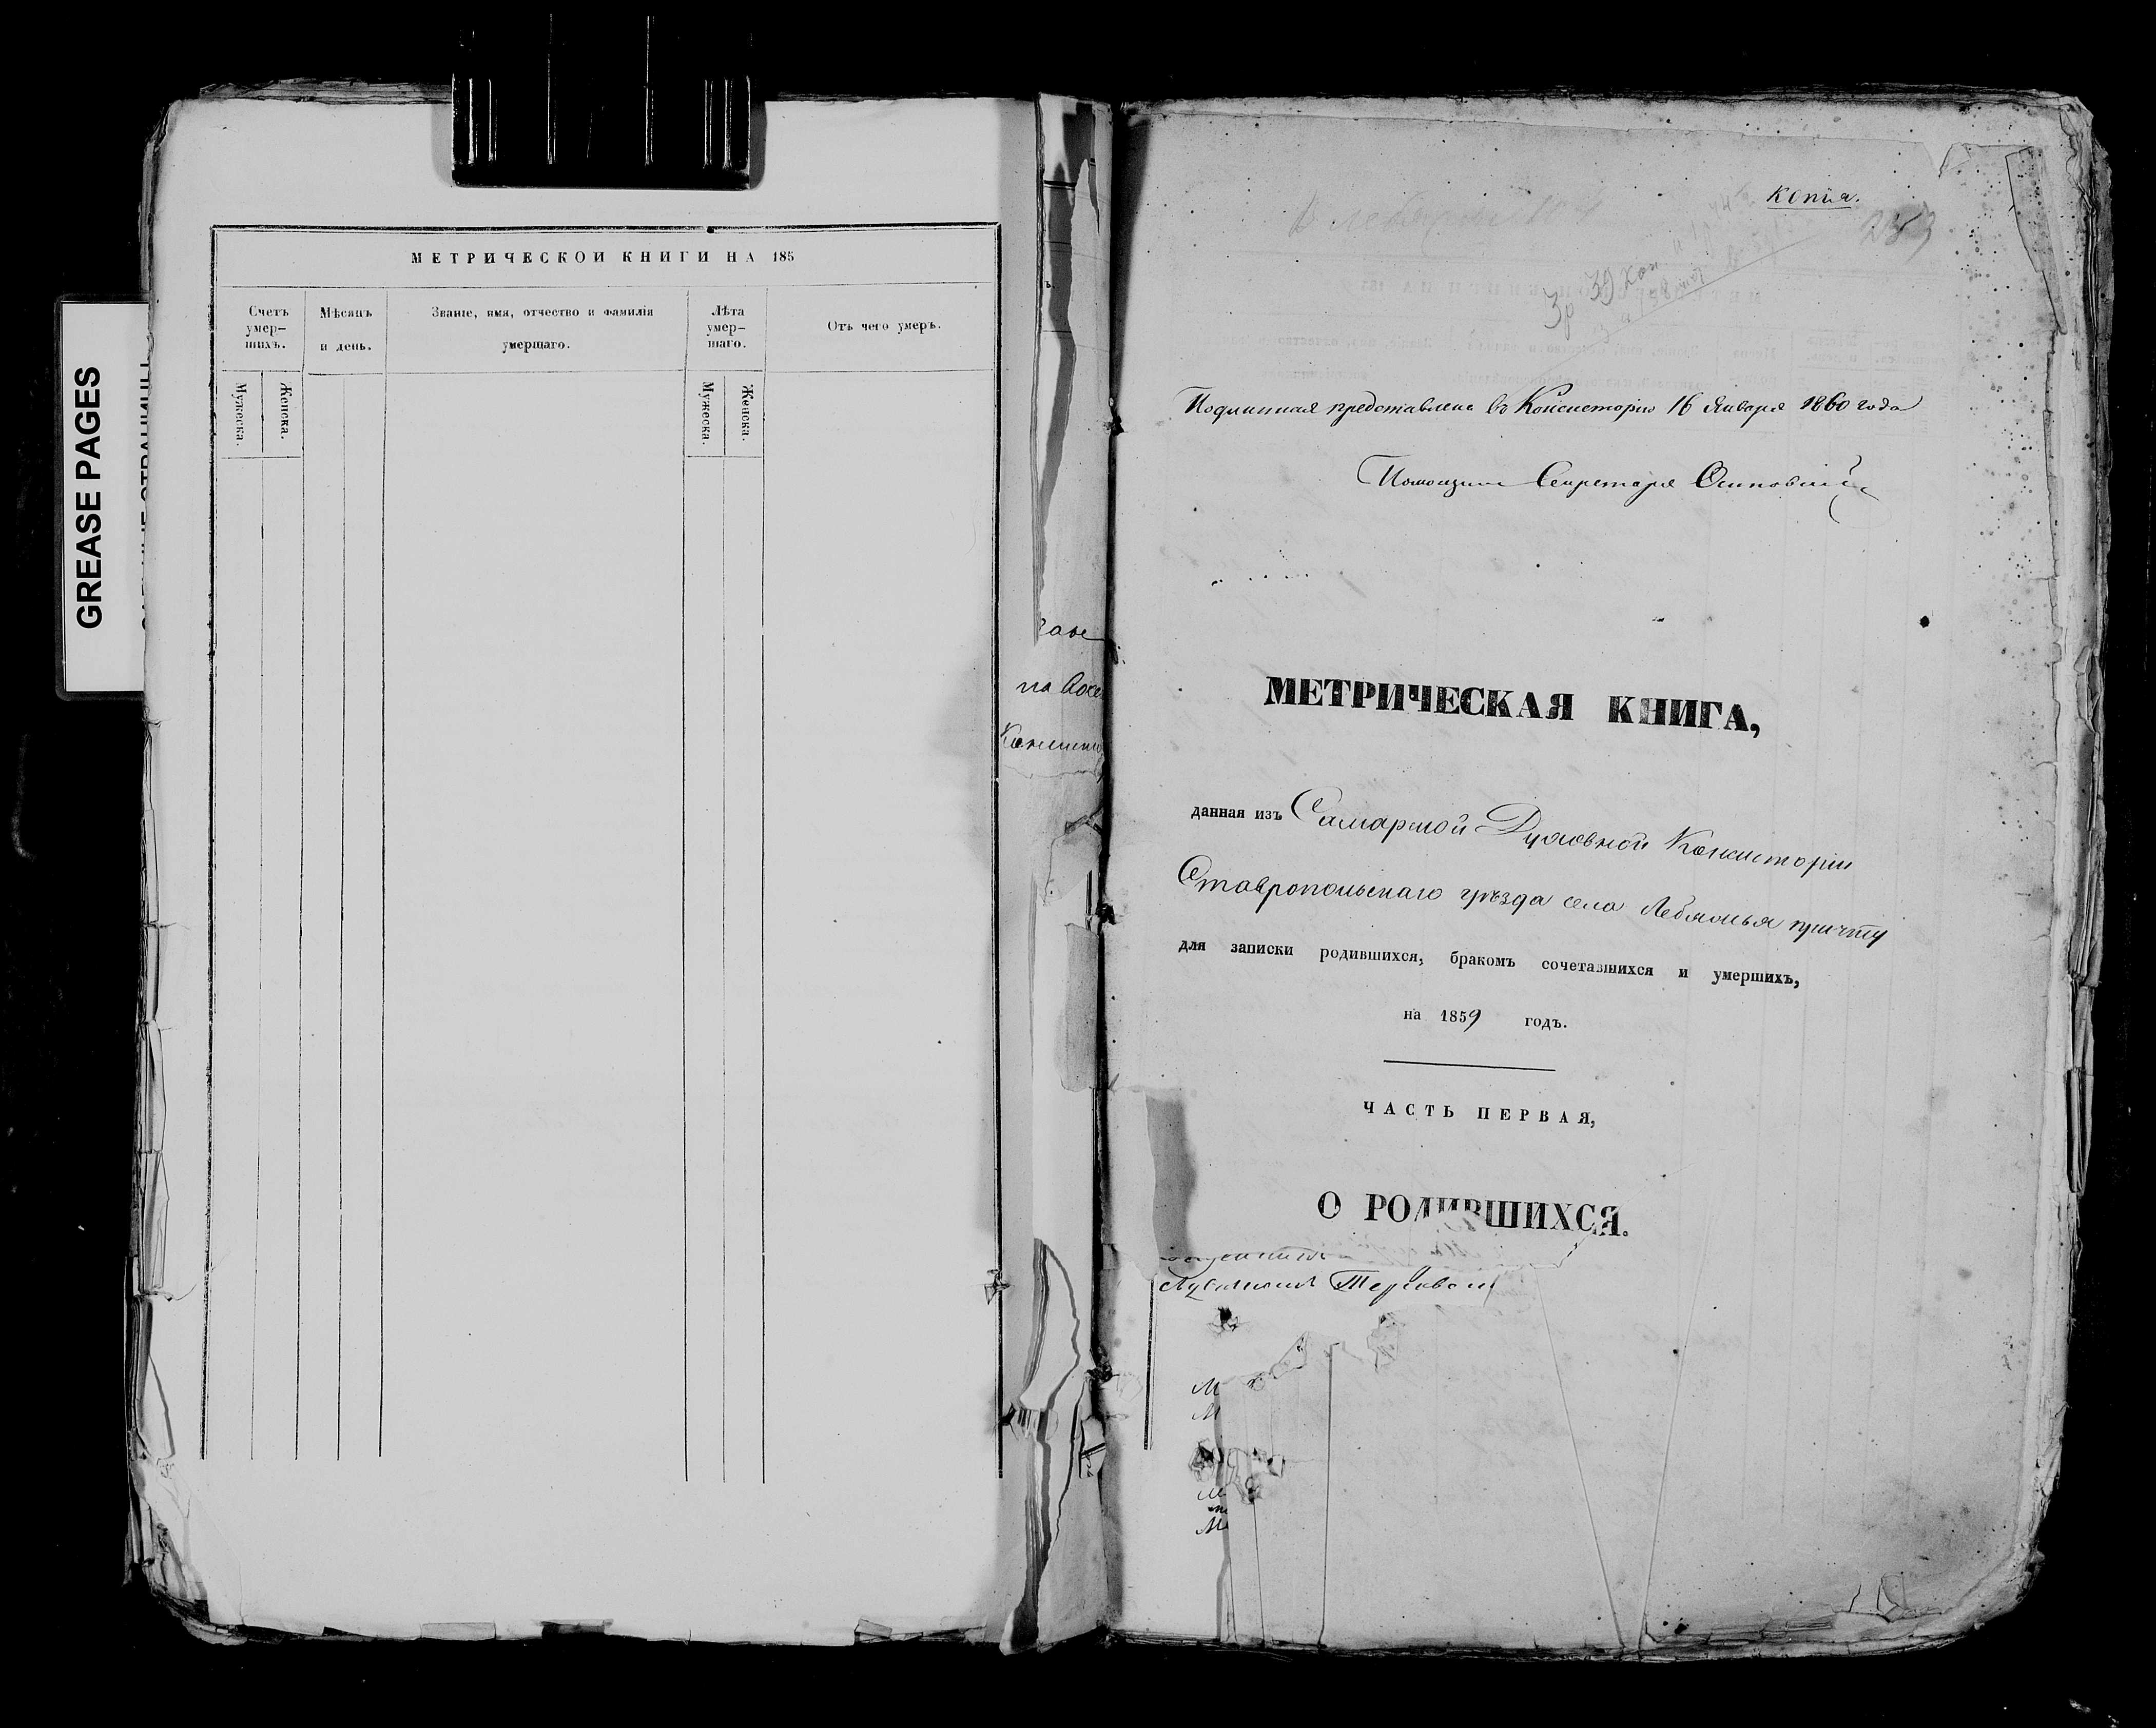 GREASE PAGES
МЕТРИЧЕСКОЙ КНИГИ НА 185
Счетъ умер-шихъ.
Мѣсяцъ и день.
Званіе, имя, отчество и фамилія умершаго.
Лѣта умер-шаго.
Отъ чего умеръ.
Мужеска.
Женска.
Мужеска.
Женска.
Копія.
Подлинная представлена въ Консисторію 16 Января 1860 года
Секретаря
МЕТРИЧЕСКАЯ КНИГА,
данная изъ Самарской Духовной Консисторіи
Ставропольскаго уѣзда села Лебяжья причту
для записки родившихся, бракомъ сочетавшихся и умершихъ,
на 1859 годъ.
ЧАСТЬ ПЕРВАЯ,
О РОДИВШИХСЯ.